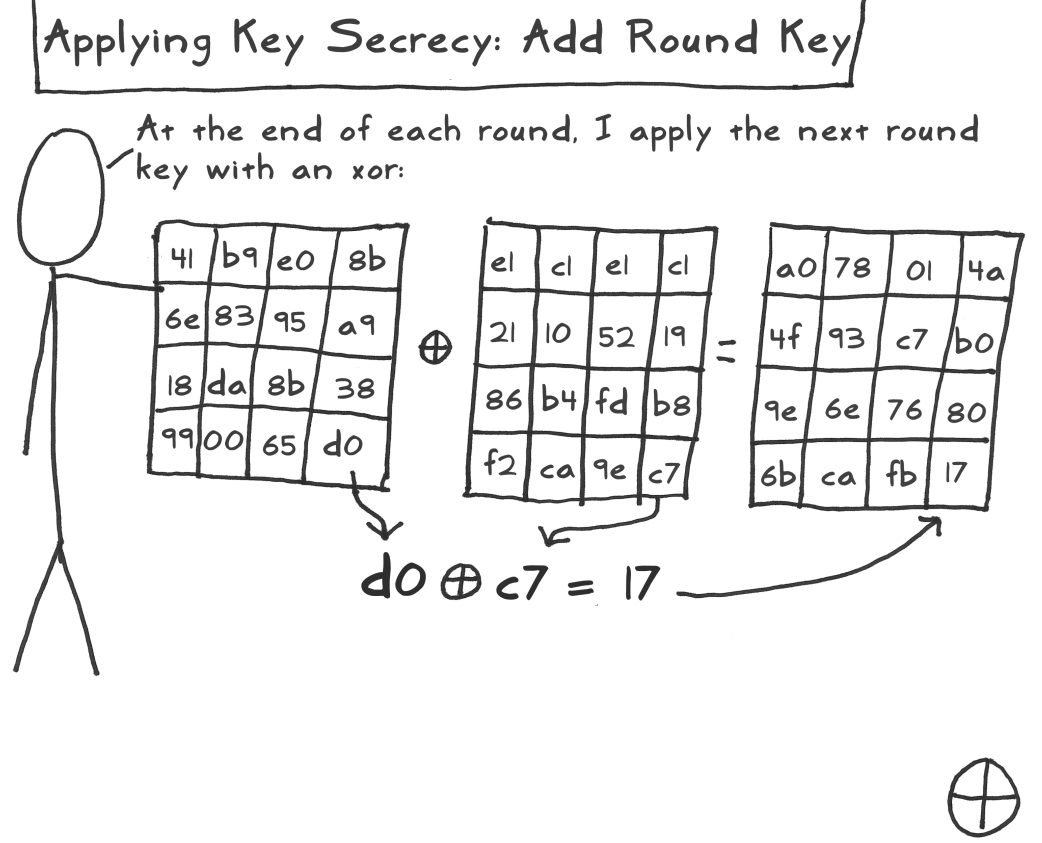 Applying Key Secrecy: Add Round Key
At the end of each round, I apply the next round
key with an xor:
41 b9 e0 8b
6e 83 95 a9
18 da 8b 38
99 00 65 d0
⊕
e1 c1 e1 c1
21 10 52 19
86 b4 fd b8
f2 ca 9e c7
=
a0 78 01 4a
4f 93 c7 b0
9e 6e 76 80
6b ca fb 17
d0 ⊕ c7 = 17